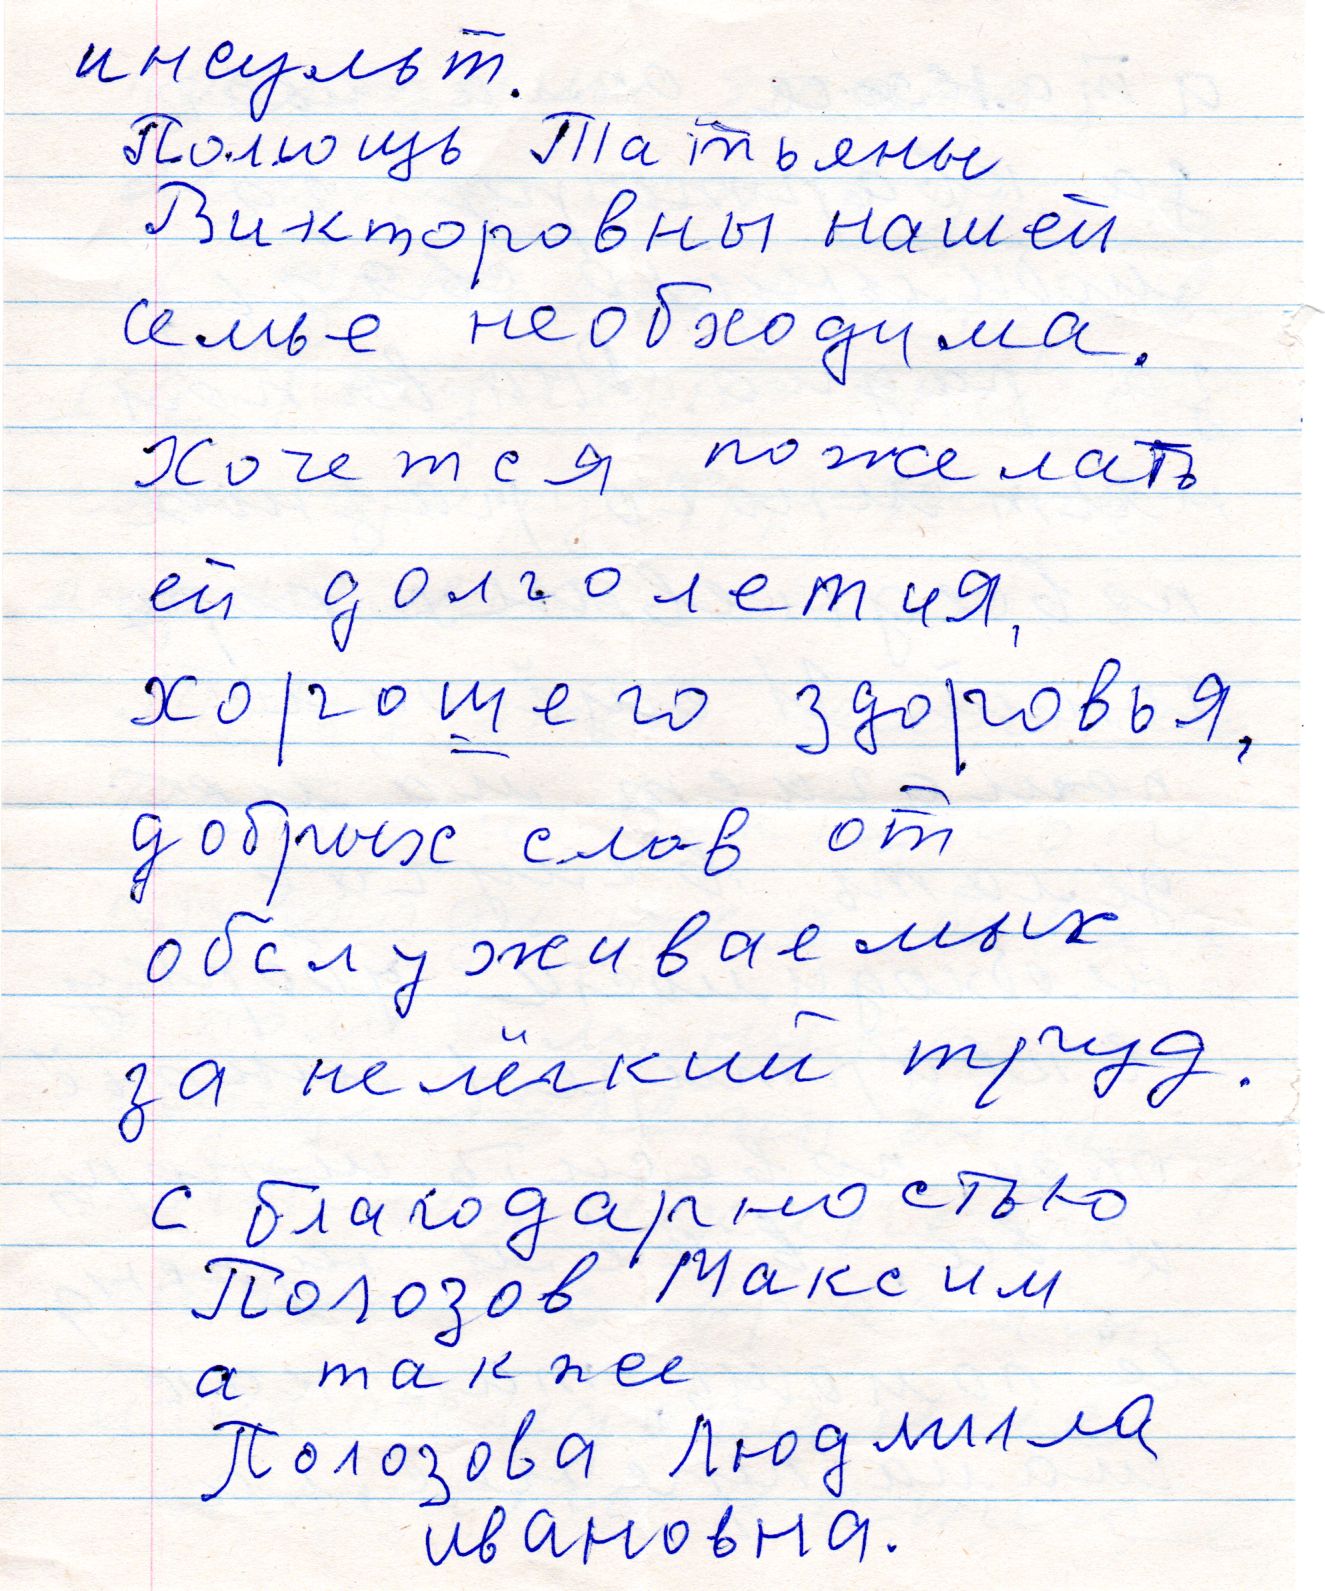 инсульт.
Помощь Татьяны
Викторовны нашей
семье необходима.
Хочется пожелать
ей долголетия,
хорошего здоровья,
добрых слов от
обслуживаемых
за нелёгкий труд.
с благодарностью
Полозов Максим
а также
Полозова Людмила
ивановна.